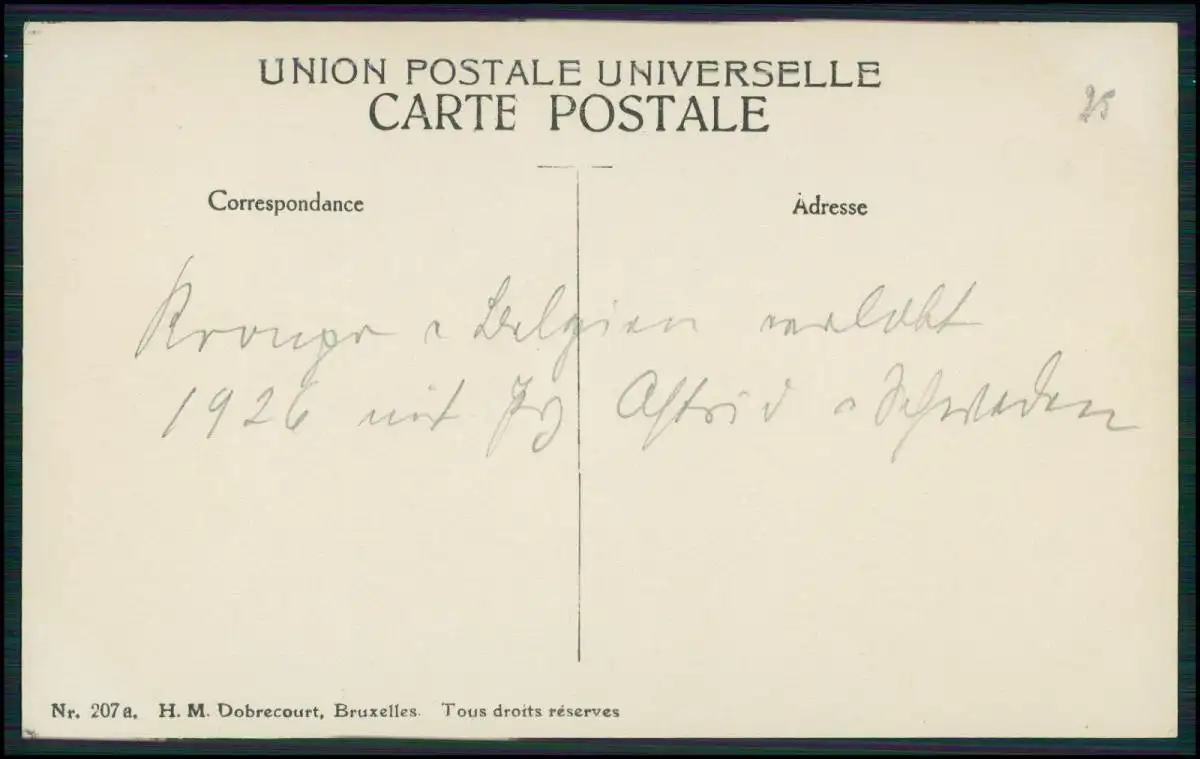 UNION POSTALE UNIVERSELLE
CARTE POSTALE
25
Correspondance
Adresse
Kronpr v Belgien verlobt
1926 mit Prz Astrid v Schweden
Nr. 207a. H. M. Dobrecourt, Bruxelles. Tous droits réserves